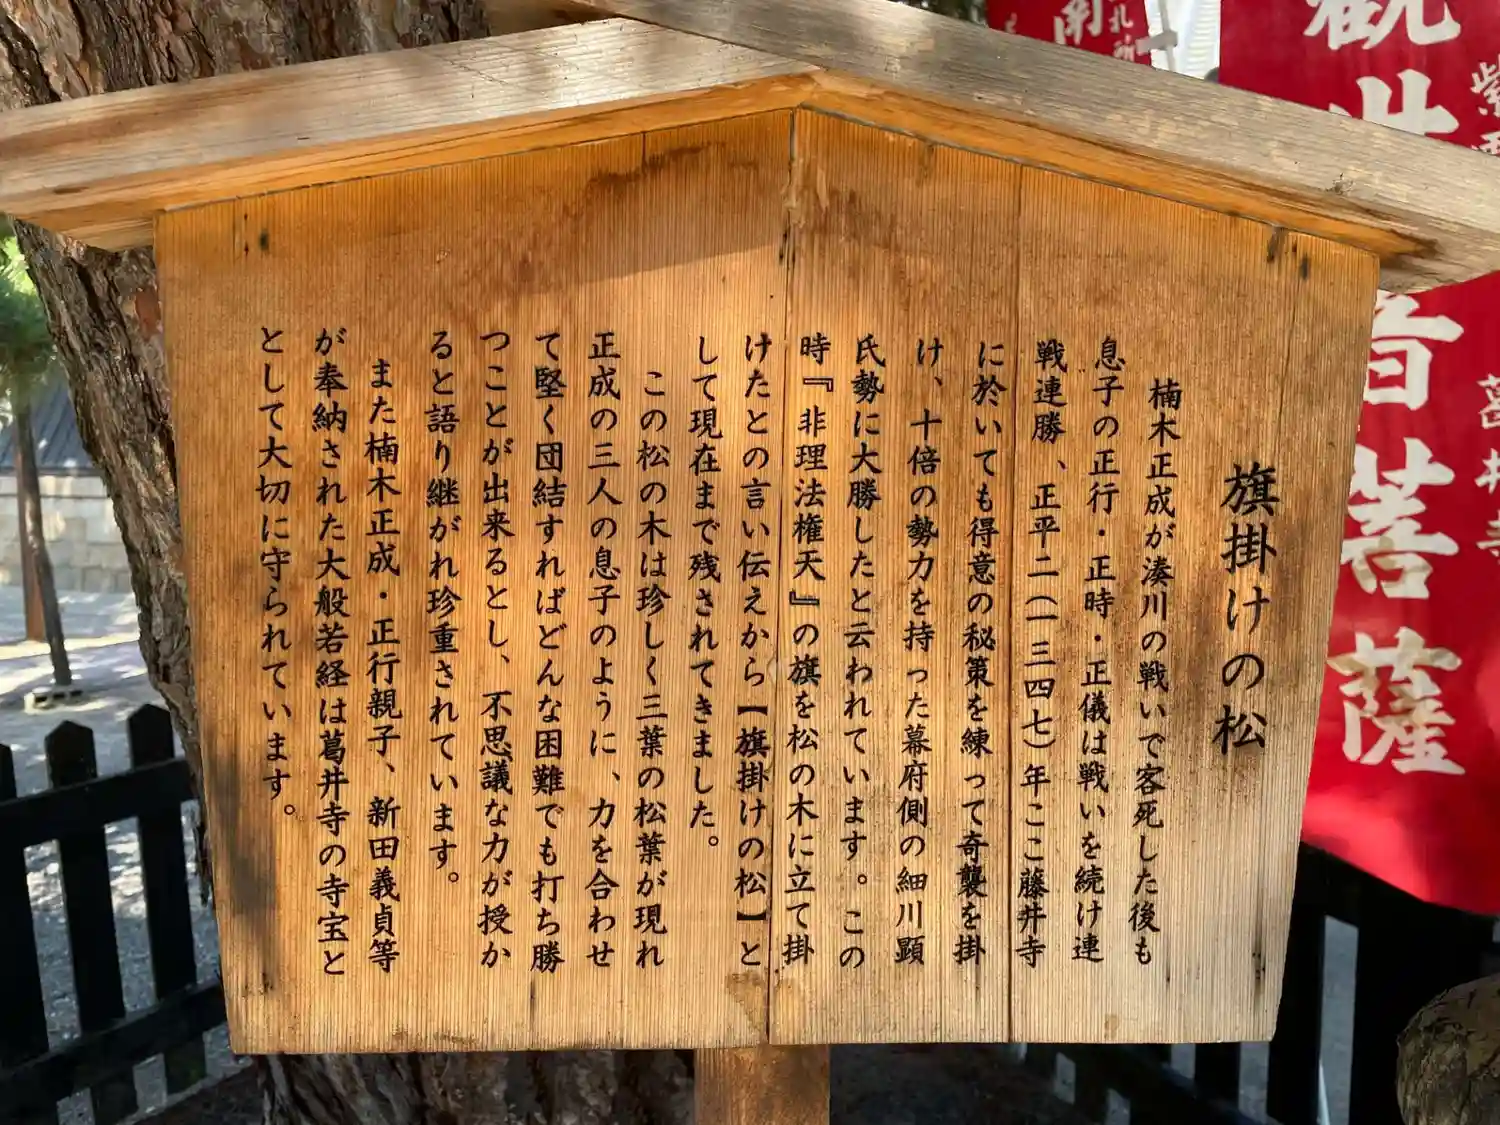 旗掛けの松
楠木正成が湊川の戦いで客死した後も
息子の正行・正時・正儀は戦いを続け連
戦連勝、正平二(一三四七)年ここ藤井寺
に於いても得意の秘策を練って奇襲を掛
け、十倍の勢力を持った幕府側の細川顕
氏勢に大勝したと云われています。この
時『非理法権天』の旗を松の木に立て掛
けたとの言い伝えから【旗掛けの松】と
して現在まで残されてきました。
この松の木は珍しく三葉の松葉が現れ
正成の三人の息子のように、力を合わせ
て堅く団結すればどんな困難でも打ち勝
つことが出来るとし、不思議な力が授か
ると語り継がれ珍重されています。
また楠木正成・正行親子、新田義貞等
が奉納された大般若経は葛井寺の寺宝と
として大切に守られています。
紫
葛井寺
観世音菩薩
札所
南